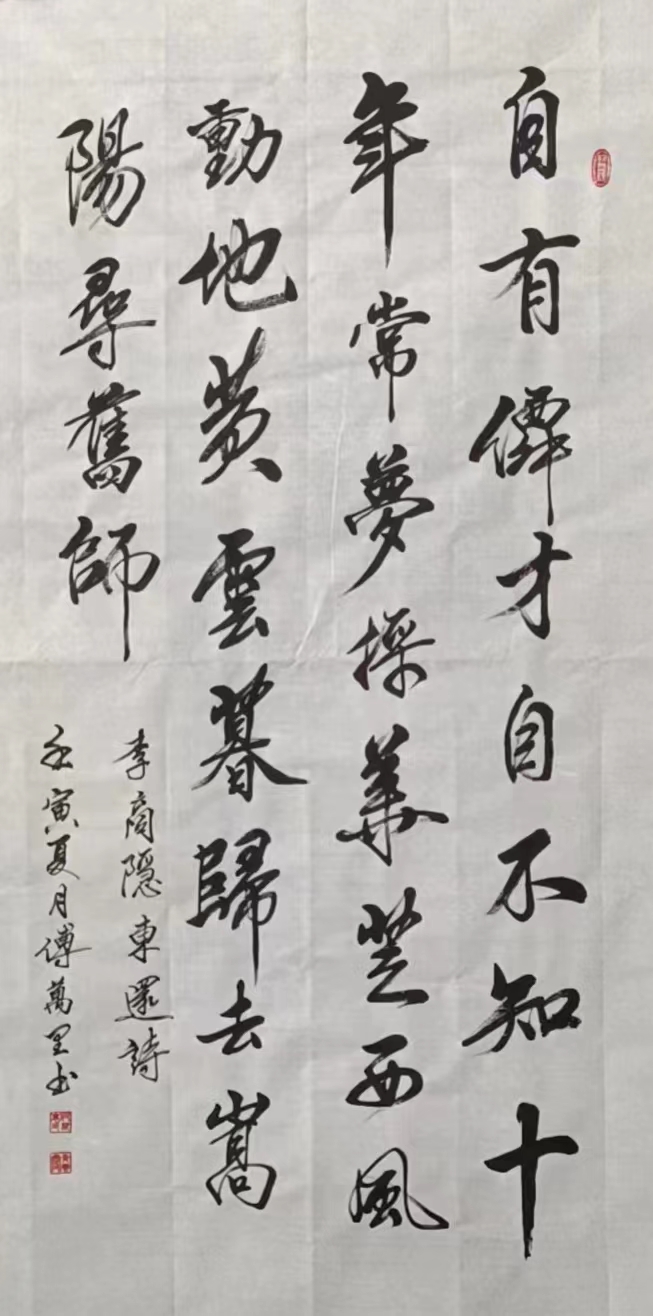 自有僊才自不知十
年常夢採華芝西風
動地黄雲暮歸去嵩
陽尋舊師
李商隐東還詩
壬寅夏月傅萬里书